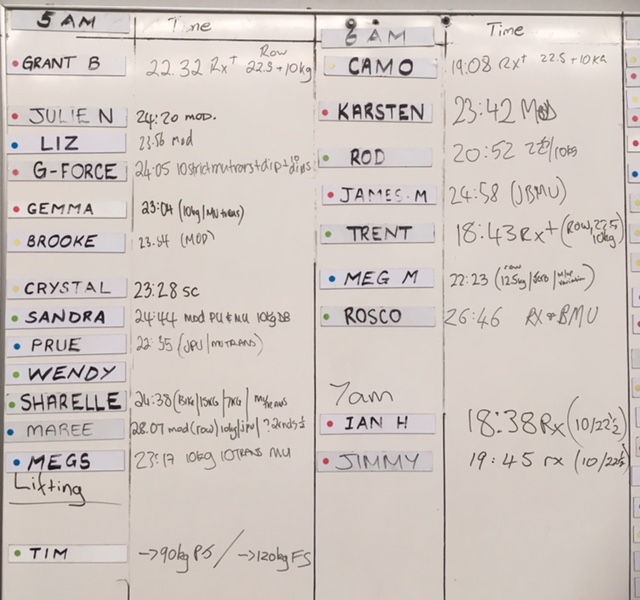 5 AM Time
GRANT B 22.32 Rx+ Row 22.5+10kg
JULIE N 24:20 MOD.
LIZ 23:56 Mod
G-FORCE 24:05 10 strict
GEMMA 23:04 (10kg/MU trans)
BROOKE 23:54 (MOD)
CRYSTAL 23:28 SC
SANDRA 24:44 mod PU & MU 10kg DB
PRUE 22:35 (JPU/MU TRANS)
WENDY
SHARELLE 24:38 (15kg/7kg/
MAREE 28.07 mod (row) 10kg/JPU/
MEGS 23:17 10kg 10TRANS MU
Lifting
TIM →90kg PS / →120kg FS
6 AM Time
CAMO 19:08 Rx+ 22.5+10kg
KARSTEN 23:42 MOD
ROD 20:52 22½/10kg
JAMES.M 24:58 (JBMU)
TRENT 18:43 Rx+ (Row, 22.5 10kg)
MEG M 22:23 (row 12.5kg/
ROSCO 26:46 RX BMU
7am
IAN H 18:38 Rx (10/22½)
JIMMY 19:45 rx (10/22½)